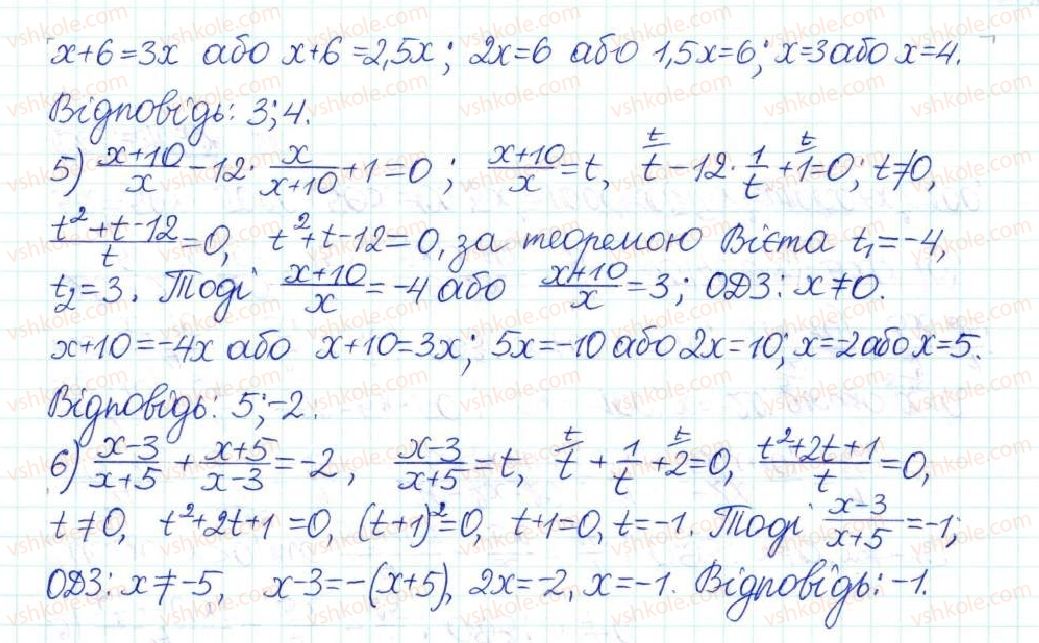 x+6=3x або x+6=2,5x; 2x=6 або 1,5x=6; x=3 або x=4.
Відповідь: 3; 4.
5) (x+10)/x − 12·x/(x+10) + 1 = 0; (x+10)/x = t, t − 12·1/t + 1 = 0; t≠0,
(t²+t−12)/t = 0, t²+t−12=0, за теоремою Вієта t₁=−4,
t₂=3. Тоді (x+10)/x = −4 або (x+10)/x = 3; ОДЗ: x≠0.
x+10=−4x або x+10=3x; 5x=−10 або 2x=10; x=−2 або x=5.
Відповідь: 5; −2.
6) (x−3)/(x+5) + (x+5)/(x−3) = −2, (x−3)/(x+5) = t, t + 1/t + 2 = 0, (t²+2t+1)/t = 0,
t≠0, t²+2t+1=0, (t+1)²=0, t+1=0, t=−1. Тоді (x−3)/(x+5) = −1;
ОДЗ: x≠−5, x−3=−(x+5), 2x=−2, x=−1. Відповідь: −1.